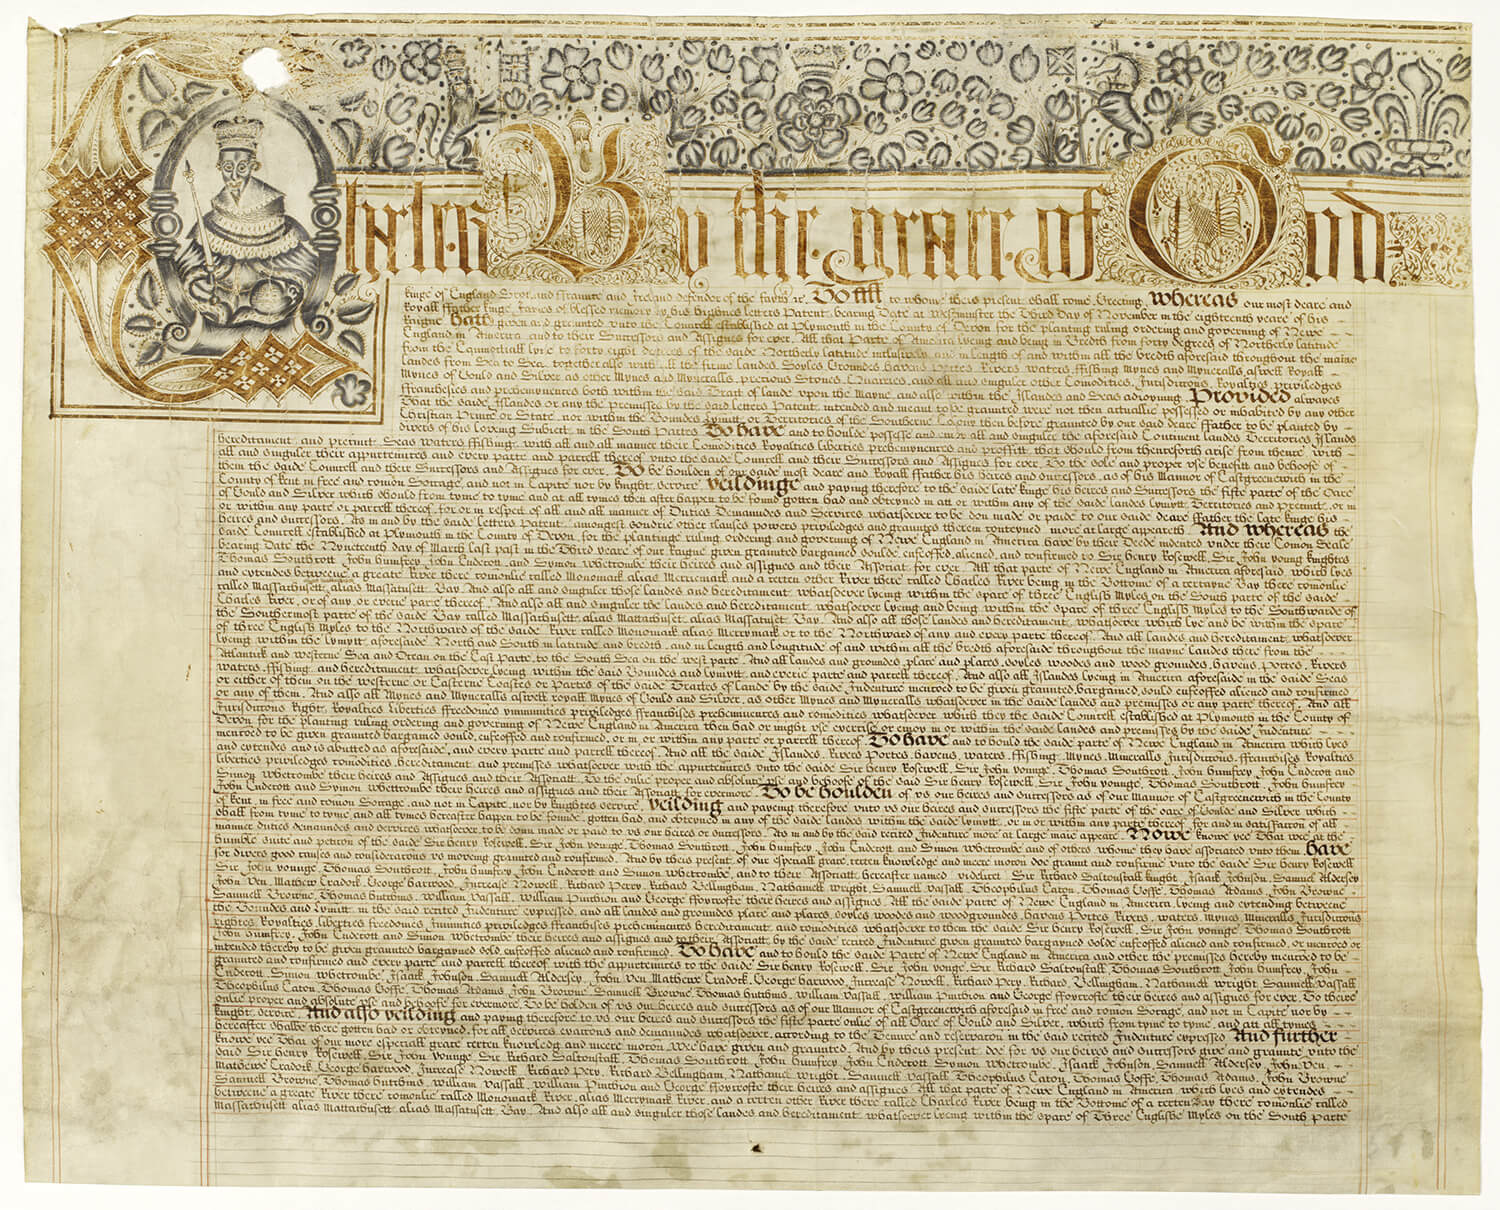 Charles By the grace of God
kinge of England Scotland ffraunce and Ireland defender of the fayth &c. To all to whome theis present shall come Greeting. Whereas our most deare and
Royall ffather kinge James of blessed memory by his highnes letters Patent bearing Date at Westminster the Third Day of November in the eighteenth yeare of his
Raigne Hath given and graunted vnto the Councell established at Plymouth in the County of Devon for the planting ruling ordering and governing of Newe
England in America and to their Successors and Assignes for ever. All that Parte of America lyeing and being in Bredth from forty degrees of Northerly latitude
from the Equinoctiall lyne to forty eight degrees of the saide Northerly latitude inclusively and in length of and within all the bredth aforesaid throughout the maine
landes from Sea to Sea together also with all the firme landes Soyles Groundes havens Portes Rivers waters ffishing Mynes and Myneralls aswell Royall
Mynes of Gould and Silver as other Mynes and Myneralls precious Stones Quarries and all and singuler other Comodities Jurisdiccons Royalties priviledges
ffranchesies and prehemynences both within the said Tract of lande vpon the Mayne and also within the Islandes and Seas adioyning Provided alwayes
That the saide Islandes or any the premisses by the said letters Patent intended and meant to be graunted were not then actuallie possessed or inhabited by any other
Christian Prince or State nor within the Boundes Lymitt or Territories of the Southerne Colony then before graunted by our said deare ffather to be planted by
divers of his loveing Subiect in the South Partes To have and to houlde possesse and enioy all and singuler the aforesaid Continent landes Territories Islands
hereditament and precinct Seas waters ffishing with all and all manner their Comodities Royalties liberties prehemynences and proffitt that should from thenceforth arise from thence with
all and singuler their appurtenances and every parte and parcell thereof vnto the saide Councell and their Successors and Assignes for ever To the sole and proper vse benefitt and behoofe of
them the saide Councell and their Successors and Assignes for ever To be houlden of our saide most deare and Royall ffather his heires and successors as of his Mannor of Eastgreenewich in the
County of kent in free and comon Soccage and not in Capite nor by knight service yeildinge and paying therefore to the saide late kinge his heires and Successors the fifte parte of the Oare
of Gould and Silver which should from tyme to tyme and at all tymes then after happen to be found gotten had and obteyned in att or within any of the saide landes lymitt Territories and Precinct or in
or within any parte or parcell thereof for or in respect of all and all manner of Duties Demaundes and Services whatsoever to be don made or paid to our saide deare ffather the late kinge his
heires and successors As in and by the saide letters Patent amongest sondrie other clauses powers priviledges and grauntes therein conteyned more at large appeareth And whereas the
saide Councell established at Plymouth in the County of Devon for the plantinge ruling ordering and governing of Newe England in America have by their Deede indented vnder their Comon Seale
bearing Date the Nyneteenth day of March last past in the Third yeare of our Raigne given graunted bargained soulde enfeoffed aliened and confirmed to Sir henry Rosewell Sir John young knightes
Thomas Southcott John humfrey John Endecott and Symon whetcombe their heires and assignes and their Associat for ever All that parte of Newe England in America aforesaid which lyes
and extendes betweene a greate River there comonlie called Monomack alias Merriemack and a certen other River there called Charles River being in the Bottome of a certayne Bay there comonlie
called Massachusett alias Massatusett Bay And also all and singuler those landes and hereditament whatsoever lyeing within the space of three English Myles on the South parte of the saide
Charles River or of any or everie parte thereof And also all and singuler the landes and hereditament whatsoever lyeing and being within the space of three English Myles to the Southwarde of
the Southermost parte of the saide Bay called Massachusett alias Mattachuset alias Massatuset Bay And also all those landes and hereditament whatsoever which lye and be within the space
of three English Myles to the Northward of the saide River called Monomack alias Merrymack or to the Northward of any and every parte thereof And all landes and hereditament whatsoever
lyeing within the lymytt aforesaide North and South in latitude and bredth and in length and longitude of and within all the bredth aforesaide throughout the mayne landes there from the
Atlantick and westerne Sea and Ocean on the East Parte to the South Sea on the west parte And all landes and groundes place and places soyles woodes and wood groundes havens Portes Rivers
waters ffishing and hereditament whatsoever lyeing within the said Boundes and lymytt and everie parte and parcell thereof And also all Islandes lyeing in America aforesaide in the saide Seas
or either of them on the westerne or Easterne Coastes or Partes of the saide Tractes of lande by the saide Indenture menconed to be given graunted bargained sould enfeoffed aliened and confirmed
or any of them And also all Mynes and Myneralls aswell royall Mynes of Gould and Silver as other Mynes and Myneralls whatsoever in the saide landes and premisses or any parte thereof And all
Jurisdiccons Right Royalties Liberties ffreedomes ymmunities priviledges franchises preheminences and comodities whatsoever which they the saide Councell established at Plymouth in the County of
Devon for the planting ruling ordering and governing of Newe England in America then had or might vse exercise or enioy in or within the saide landes and premisses by the saide Indenture
menconed to be given graunted bargained sould enfeoffed and confirmed or in or within any parte or parcell thereof To have and to hould the saide parte of Newe England in America which lyes
and extendes and is abutted as aforesaide and every parte and parcell thereof And all the saide Islandes Rivers Portes havens waters ffishing Mynes Mineralls Jurisdiccons ffranchises Royalties
liberties priviledges comodities hereditament and premisses whatsoever with the appurtenances vnto the saide Sir henry Rosewell Sir John younge Thomas Southcott John humfrey John Endecott and
Simon whetcombe their heires and Assignes and their Associatt To the onlie proper and absolute vse and behoofe of the said Sir henry Rosewell Sir John younge Thomas Southcott John humfrey
John Endicott and Symon whettcombe their heires and assignes and their Associatt for evermore To be houlden of vs our heires and successors as of our Mannor of Eastgreenewich in the County
of kent in free and comon Soccage and not in Capite nor by knightes service yeilding and payeing therefore vnto vs our heires and successors the fifte parte of the oare of Goulde and Silver which
shall from tyme to tyme and all tymes hereafter happen to be founde gotten had and obteyned in any of the saide landes within the saide lymytt or in or within any parte thereof for and in satisfaccon of all
manner duties demaundes and services whatsoever to be donn made or paid to vs our heires or successors As in and by the said recited Indenture more at large maie appeare Nowe knowe yee That wee at the
humble suite and peticon of the saide Sir henry Rosewell Sir John younge Thomas Southcott John humfrey John Endecott and Simon whetcombe and of others whome they have associated vnto them have
for divers good causes and consideracons vs moveing graunted and confirmed And by theis present of our especiall grace certen knowledge and meere mocon doe graunt and confirme vnto the saide Sir henry Rosewell
Sir John younge Thomas Southcott John humfrey John Endecott and Simon whetcombe and to their Associatt hereafter named videlicet Sir Richard Saltonstall knight Isaack Johnson Samuel Aldersey
John Ven Mathew Cradock George harwood Increase Nowell Richard Perry Richard Bellingham Nathaniell wright Samuell vassall Theophilus Eaton Thomas Goffe Thomas Adams John Browne
Samuell Browne Thomas hutchins William vassall william Pinchion and George ffoxcrofte their heires and assignes All the saide parte of Newe England in America lyeing and extending betweene
the Boundes and Lymytt in the said recited Indenture expressed and all landes and groundes place and places soyles woodes and woodgroundes havens Portes Rivers waters Mynes Mineralls Jurisdiccons
rightes Royalties liberties freedomes Immunities priviledges ffranchises preheminences hereditament and comodities whatsoever to them the saide Sir henry Rosewell Sir John younge Thomas Southcott
John humfrey John Endecott and Simon whetcombe their heires and assignes and to their Associatt by the saide recited Indenture given graunted bargayned solde enfeoffed aliened and confirmed or menconed or
intended thereby to be given graunted bargayned sold enfeoffed aliened and confirmed To have and to hould the saide Parte of Newe England in America and other the premisses hereby menconed to be
graunted and confirmed and every parte and parcell thereof with the appurtenances to the saide Sir henry Rosewell Sir John yonge Sir Richard Saltonstall Thomas Southcott John humfrey John
Endecott Simon whetcombe Isaack Johnson Samuell Aldersey John Ven Mathewe Cradock George harwood Increase Nowell Richard Pery Richard Bellingham Nathaniell wright Samuell vassall
Theophilus Eaton Thomas Goffe Thomas Adams John Browne Samuell Browne Thomas hutchins William vassall william Pinchion and George ffoxcrofte their heires and assignes for ever To their
onlie proper and absolute vse and behoofe for evermore To be holden of vs our heires and successors as of our Mannor of Eastgreenewich aforesaid in free and comon Socage and not in Capite nor by
knight service And also yeilding and paying therefore to vs our heires and successors the fifte parte onlie of all Oare of Gould and Silver which from tyme to tyme and att all tymes
hereafter shalbe there gotten had or obteyned for all services exaccons and demaundes whatsoever according to the Tenure and reservacon in the said recited Indenture expressed And further
knowe yee That of our more especiall grace certen knowledg and meere mocon Wee have given and graunted And by theis present doe for vs our heires and successors give and graunte vnto the
said Sir henry Rosewell Sir John Younge Sir Richard Saltonstall Thomas Southcott John humfrey John Endecott Symon whetcombe Isaack Johnson Samuell Aldersey John Ven
Mathewe Cradock George harwood Increase Nowell Richard Pery Richard Bellingham Nathaniel wright Samuell vassall Theophilus Eaton Thomas Goffe Thomas Adams John Browne
Samuell Browne Thomas hutchins william vassall william Pinchion and George ffoxcrofte their heires and assignes All that parte of Newe England in America which lyes and extendes
betweene a greate River there comonlie called Monomack River alias Merrymack River and a certen other River there called Charles River being in the Bottome of a certen Bay there comonlie called
Massachusett alias Mattachusett alias Massatusett Bay And also all and singuler those landes and hereditament whatsoever lyeing within the space of Three Englishe Myles on the South parte